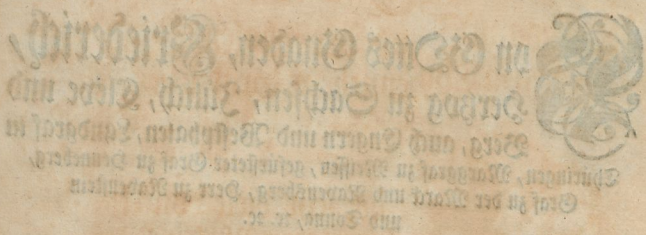 Von GOttes Gnaden, Friederich,
Herzog zu Sachsen, Jülich, Cleve und
Berg, auch Engern und Westphalen, Landgraf in
Thüringen, Marggraf zu Meissen, gefürsteter Graf zu Henneberg,
Graf zu der Marck und Ravensberg, Herr zu Ravenstein
und Tonna, ꝛc. ꝛc.